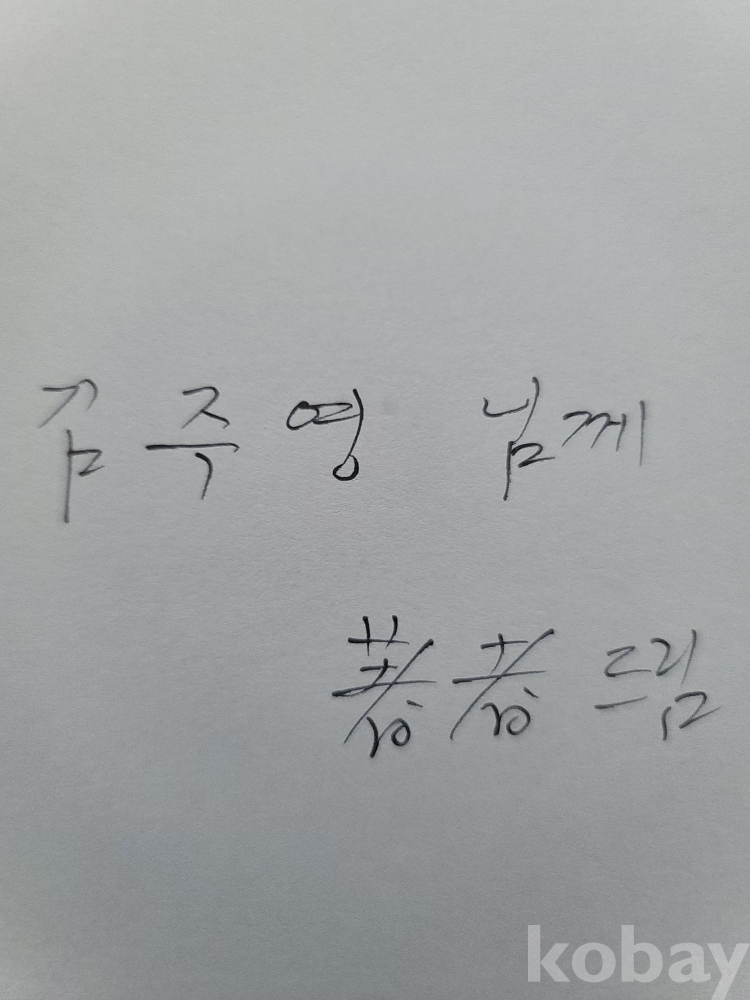 김주영 님께
著者 드림
kobay